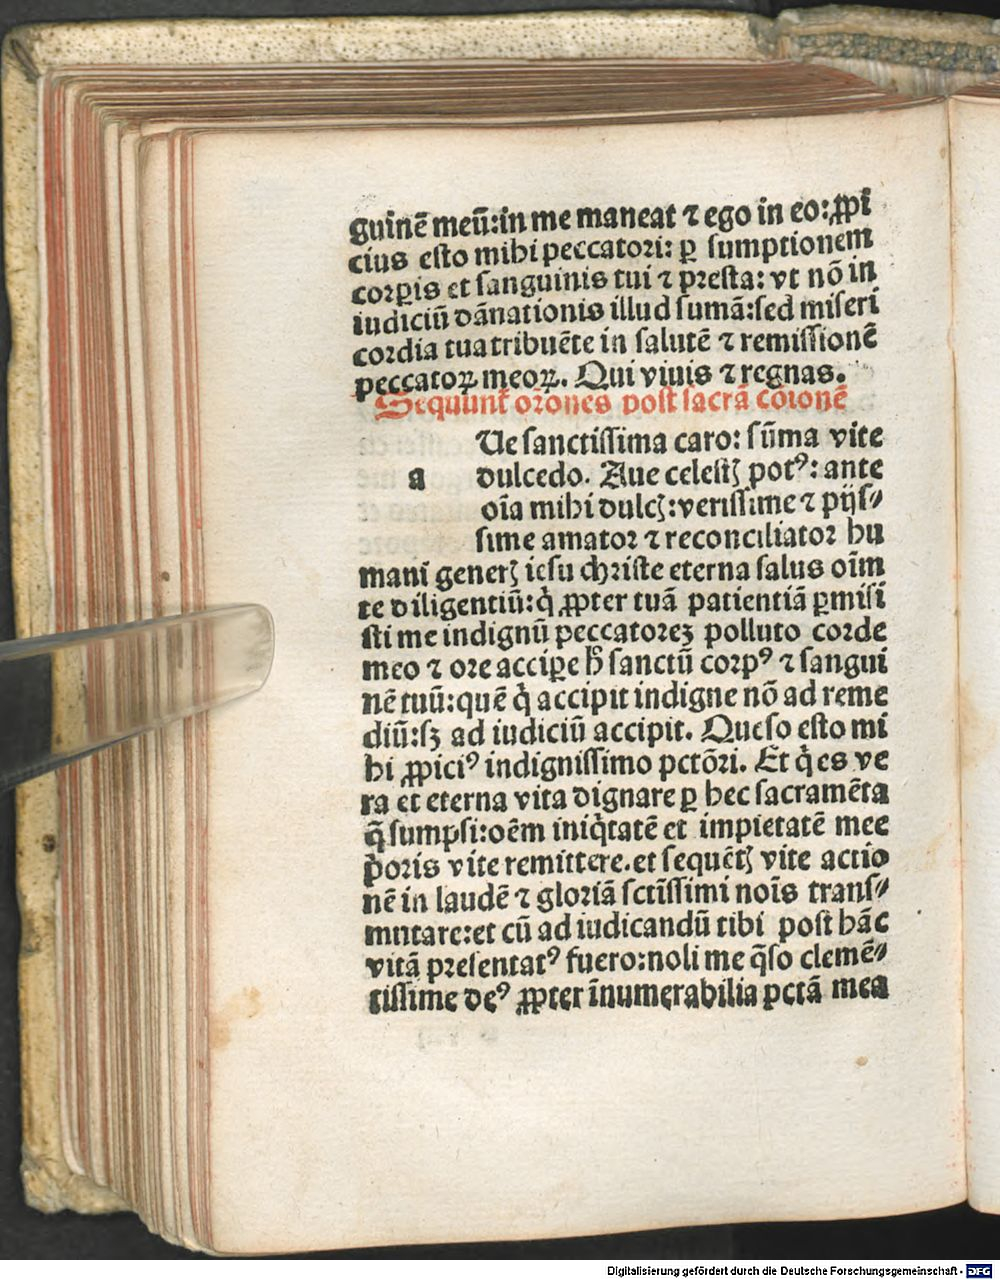 guinē meū:in me maneat ⁊ ego in eo:ꝓpi
cius esto mihi peccatori: ꝑ sumptionem
corꝑis et sanguinis tui ⁊ presta: vt nō in
iudiciū dānationis illud sumā:sed miseri
cordia tua tribuēte in salutē ⁊ remissionē
peccatoꝝ meoꝝ. Qui viuis ⁊ regnas.
Sequunt̄ or̄ones post sacrā cōionē
Ue sanctissima caro: sūma vite
a dulcedo. Aue celestꝭ potꝰ: ante
oīa mihi dulcꝭ:verissime ⁊ pijs⸗
sime amator ⁊ reconciliator hu
mani generꝭ iesu christe eterna salus oīm
te diligentiū:q̇ ꝓpter tuā patientiā ꝑmisi
sti me indignū peccatoreꝫ polluto corde
meo ⁊ ore acciꝑe h̄ sanctū corpꝰ ⁊ sangui
nē tuū:quē q̇ accipit indigne nō ad reme
diū:sꝫ ad iudiciū accipit. Queso esto mi
hi ꝓpiciꝰ indignissimo pctōri. Et q̇ es ve
ra et eterna vita dignare ꝑ hec sacramēta
q̄ sumpsi:oēm iniq̇tatē et impietatē mee
p̱oris vite remittere.et sequētꝭ vite actio
nē in laudē ⁊ gloriā sctīssimi noīs trans⸗
mutare:et cū ad iudicandū tibi post hāc
vitā presentatꝰ fuero:noli me q̄so clemē⸗
tissime deꝰ ꝓpter īnumerabilia pctā mea
Digitalisierung gefördert durch die Deutsche Forschungsgemeinschaft - DFG